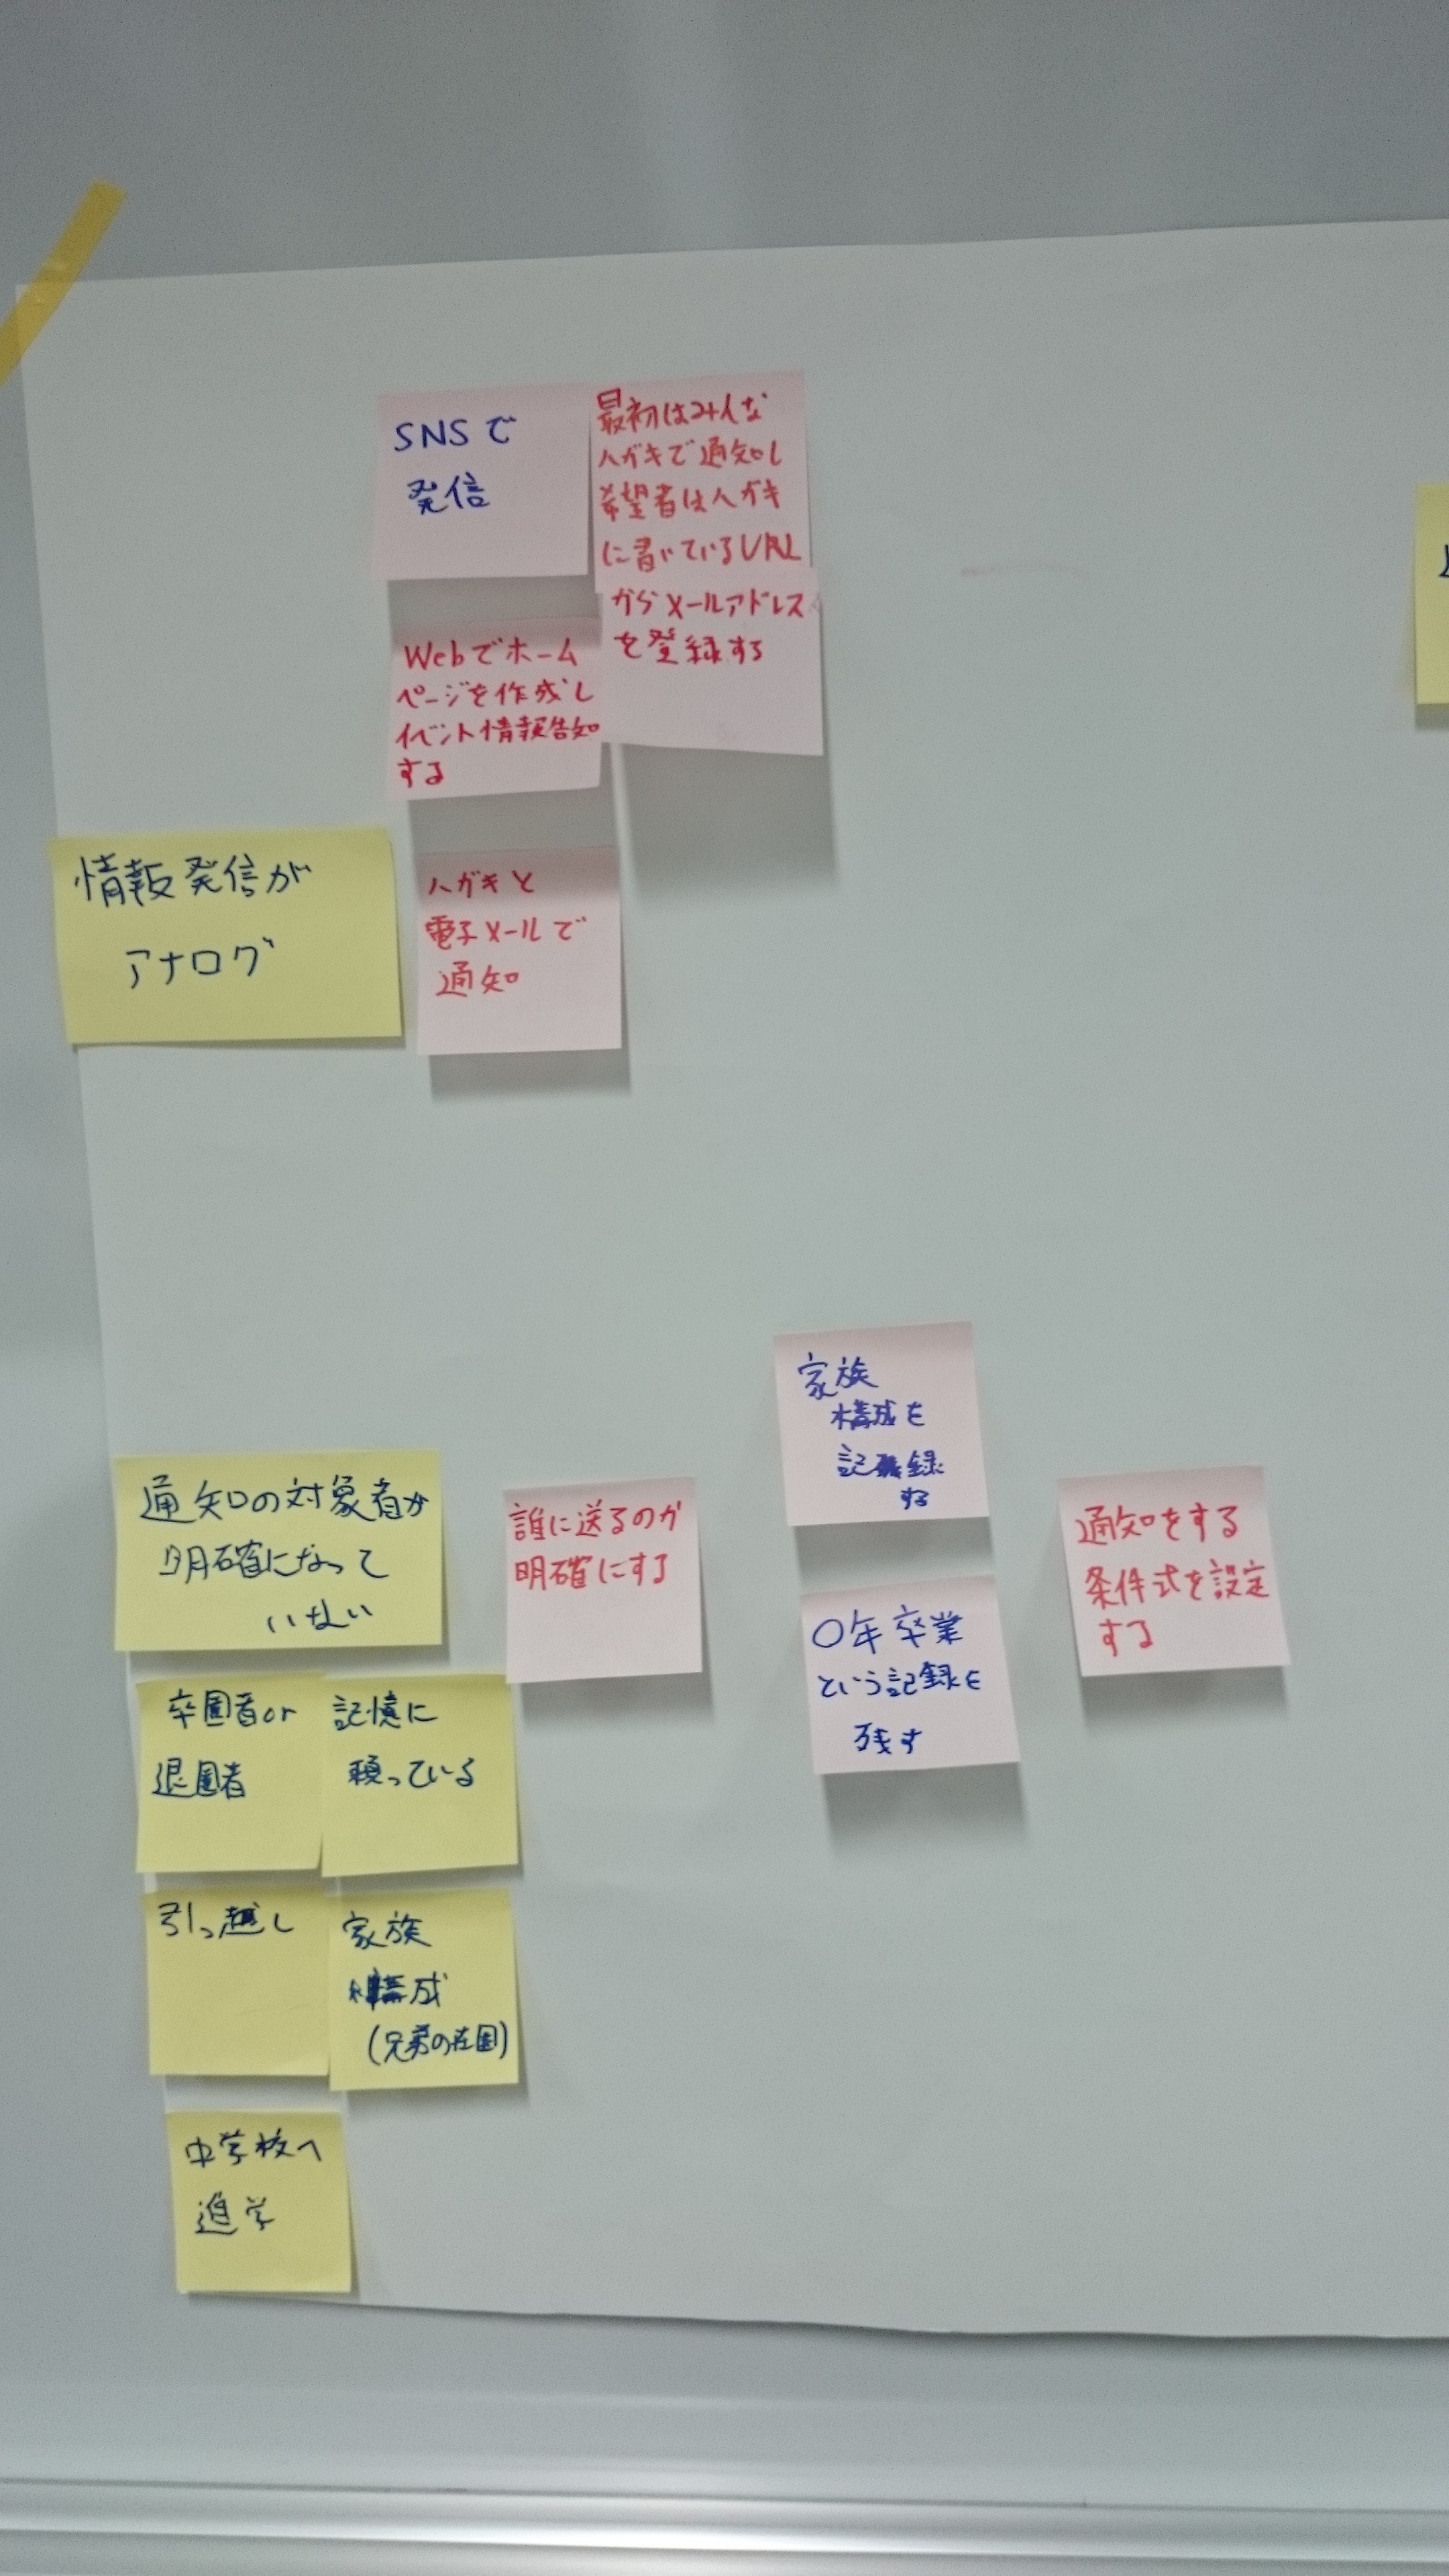 SNSで
発信
最初はみんな
ハガキで通知し
希望者はハガキ
に書いているURL
からメールアドレス
を登録する
Webでホーム
ページを作成し
イベント情報告知
する
情報発信が
アナログ
ハガキと
電子メールで
通知
通知の対象者が
明確になって
いない
誰に送るのか
明確にする
家族
構成を
記録
する
〇年卒業
という記録を
残す
通知をする
条件式を設定
する
卒園者or
退園者
記憶に
頼っている
引っ越し
家族
構成
(兄弟の在園)
中学校へ
進学